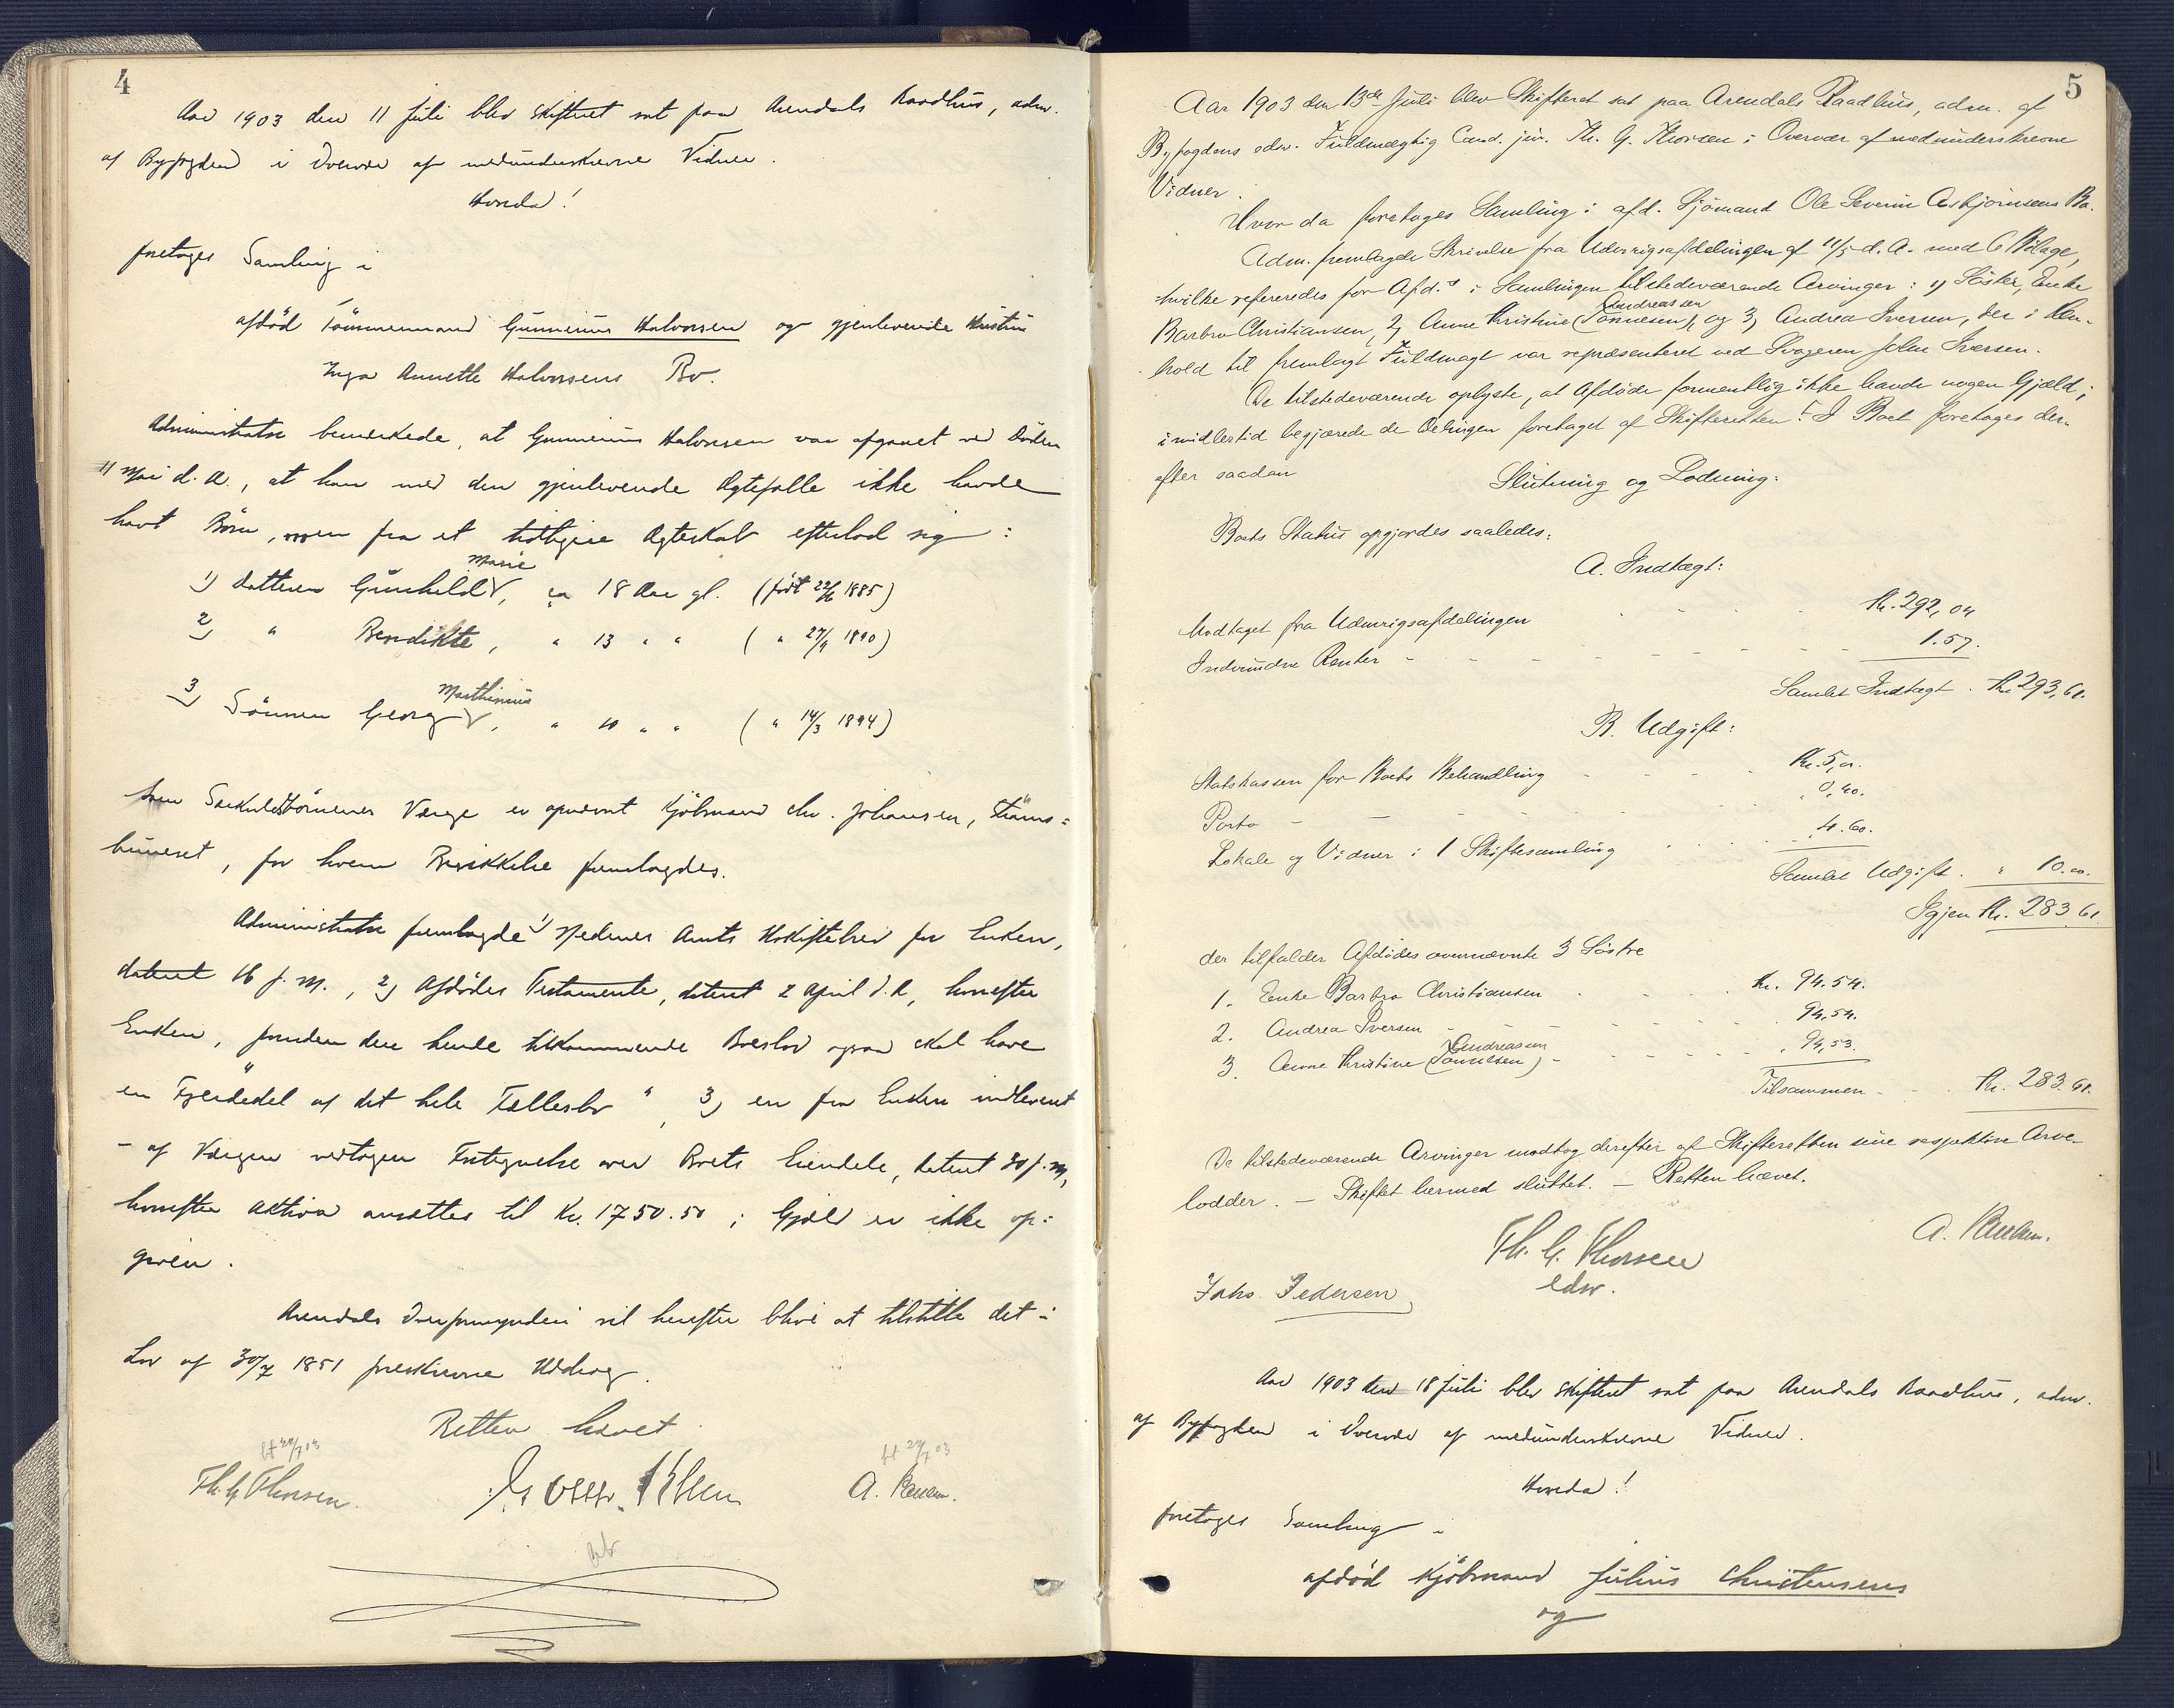 4
Aar 1903 den 11 Juli blev Skifteret sat paa Arendals Raadhus, adm.
af Byfogden i Overvær af medunderskrevne Vidner.
Hvorda!
foretages Samling i
afdød Tømmermand Gunnerius Halvorsen og gjenlevende Hustru
Inga Annette Halvorsens Bo.
Administrator bemærkede, at Gunnerius Halvorsen var afgaaet ved Døden
11 Mai d. A., at han med den gjenlevende Ægtefælle ikke havde
havt Børn, men fra et tidligere Ægteskab efterlod sig:
Marie
1) Datteren Gunhild, ca 18 Aar gl. (født 22/6 1885)
2) " Bendikte, " 13 " " ( " 27/9 1890)
Marthinius
3) Sønnen Georg, " 10 " " ( " 14/3 1894)
Som Særkuldbørnenes Værge er opnævnt Kjøbmand Chr. Johansen, Strøms=
buneset, for hvem Beskikkelse fremlagdes.
Administrator fremlagde 1) Nedenes Amts Uskiftebrev for Enken,
dateret 16 f. M., 2) Afdødes Testamente, dateret 2 April d. A, hvorefter
Enken, foruden den hende tilkommende Boeslod ogsaa skal have
"en Fjerdedel af det hele Fællesbo", 3) en fra Enken indleveret
- af Værgen vedtagen Fortegnelse over Boets Eiendele, dateret 30 f. M,
hvorefter Aktiva ansættes til Kr. 1750.50; Gjæld er ikke op=
given.
Arendals Overformynderi vil herefter blive at tilstille det i
Lov af 30/7 1851 foreskrevne Uddrag.
Retten hævet.
bt 24/7 03
bt 24/7 03
Th. G. Thorsen.
A. Paulsen.
5
Aar 1903 den 13de Juli blev Skifteret sat paa Arendals Raadhus, adm. af
Byfogdens edsv. Fuldmægtig Cand. jur. Th. G. Thorsen i Overvær af medunderskrevne
Vidner.
Hvor da foretages Samling i afd. Sjømand Ole Severin Asbjørnsens Bo.
Adm. fremlagde Skrivelse fra Udenrigsafdelingen af 11/5 d. A. med 6 Bilage,
hvilke refereredes for Afd.s i Samlingen tilstedeværende Arvinger: 1) Søster, Enke
Andreassen
Barbro Christiansen, 2) Anne Kristine (Tønnesen), og 3) Andrea Iversen, der i Hen-
hold til fremlagt Fuldmagt var repræsenteret ved Svogeren John Iversen.
De tilstedeværende oplyste, at Afdøde formentlig ikke havde nogen Gjæld;
imidlertid begjærede de Delingen foretaget af Skifteretten. I Boet foretages der-
efter saadan
Slutning og Lodning:
Boets Status opgjordes saaledes:
A. Indtægt:
Modtaget fra Udenrigsafdelingen Kr. 292,04
Indvundne Renter - - - - - - - - 1.57.
Samlet Indtægt. Kr. 293,61.
B. Udgift:
Statskassen for Boets Behandling Kr. 5,00.
Porto - - - - - 0,40.
Lokale og Vidner i 1 Skiftesamling 4.60.
Samlet Udgift. " 10.00.
Igjen Kr. 283.61.
der tilfalder Afdødes ovennævnte 3 Søstre
1. Enke Barbro Christiansen Kr. 94.54.
2. Andrea Iversen - - - - 94,54.
Andreassen
3. Anne Kristine (Tønnesen) - - - - 94,53.
Tilsammen - - Kr. 283.61.
De tilstedeværende Arvinger modtog derefter af Skifteretten sine respektive Arve-
lodder. - Skiftet hermed sluttet. - Retten hævet.
Th. G. Thorsen
A. Paulsen.
edsv.
Johs. Pedersen
Aar 1903 den 18 Juli blev Skifteret sat paa Arendals Raadhus, adm.
af Byfogden i Overvær af medunderskrevne Vidner.
Hvorda!
foretages Samling i
afdød Kjøbmand Julius Christensens
og